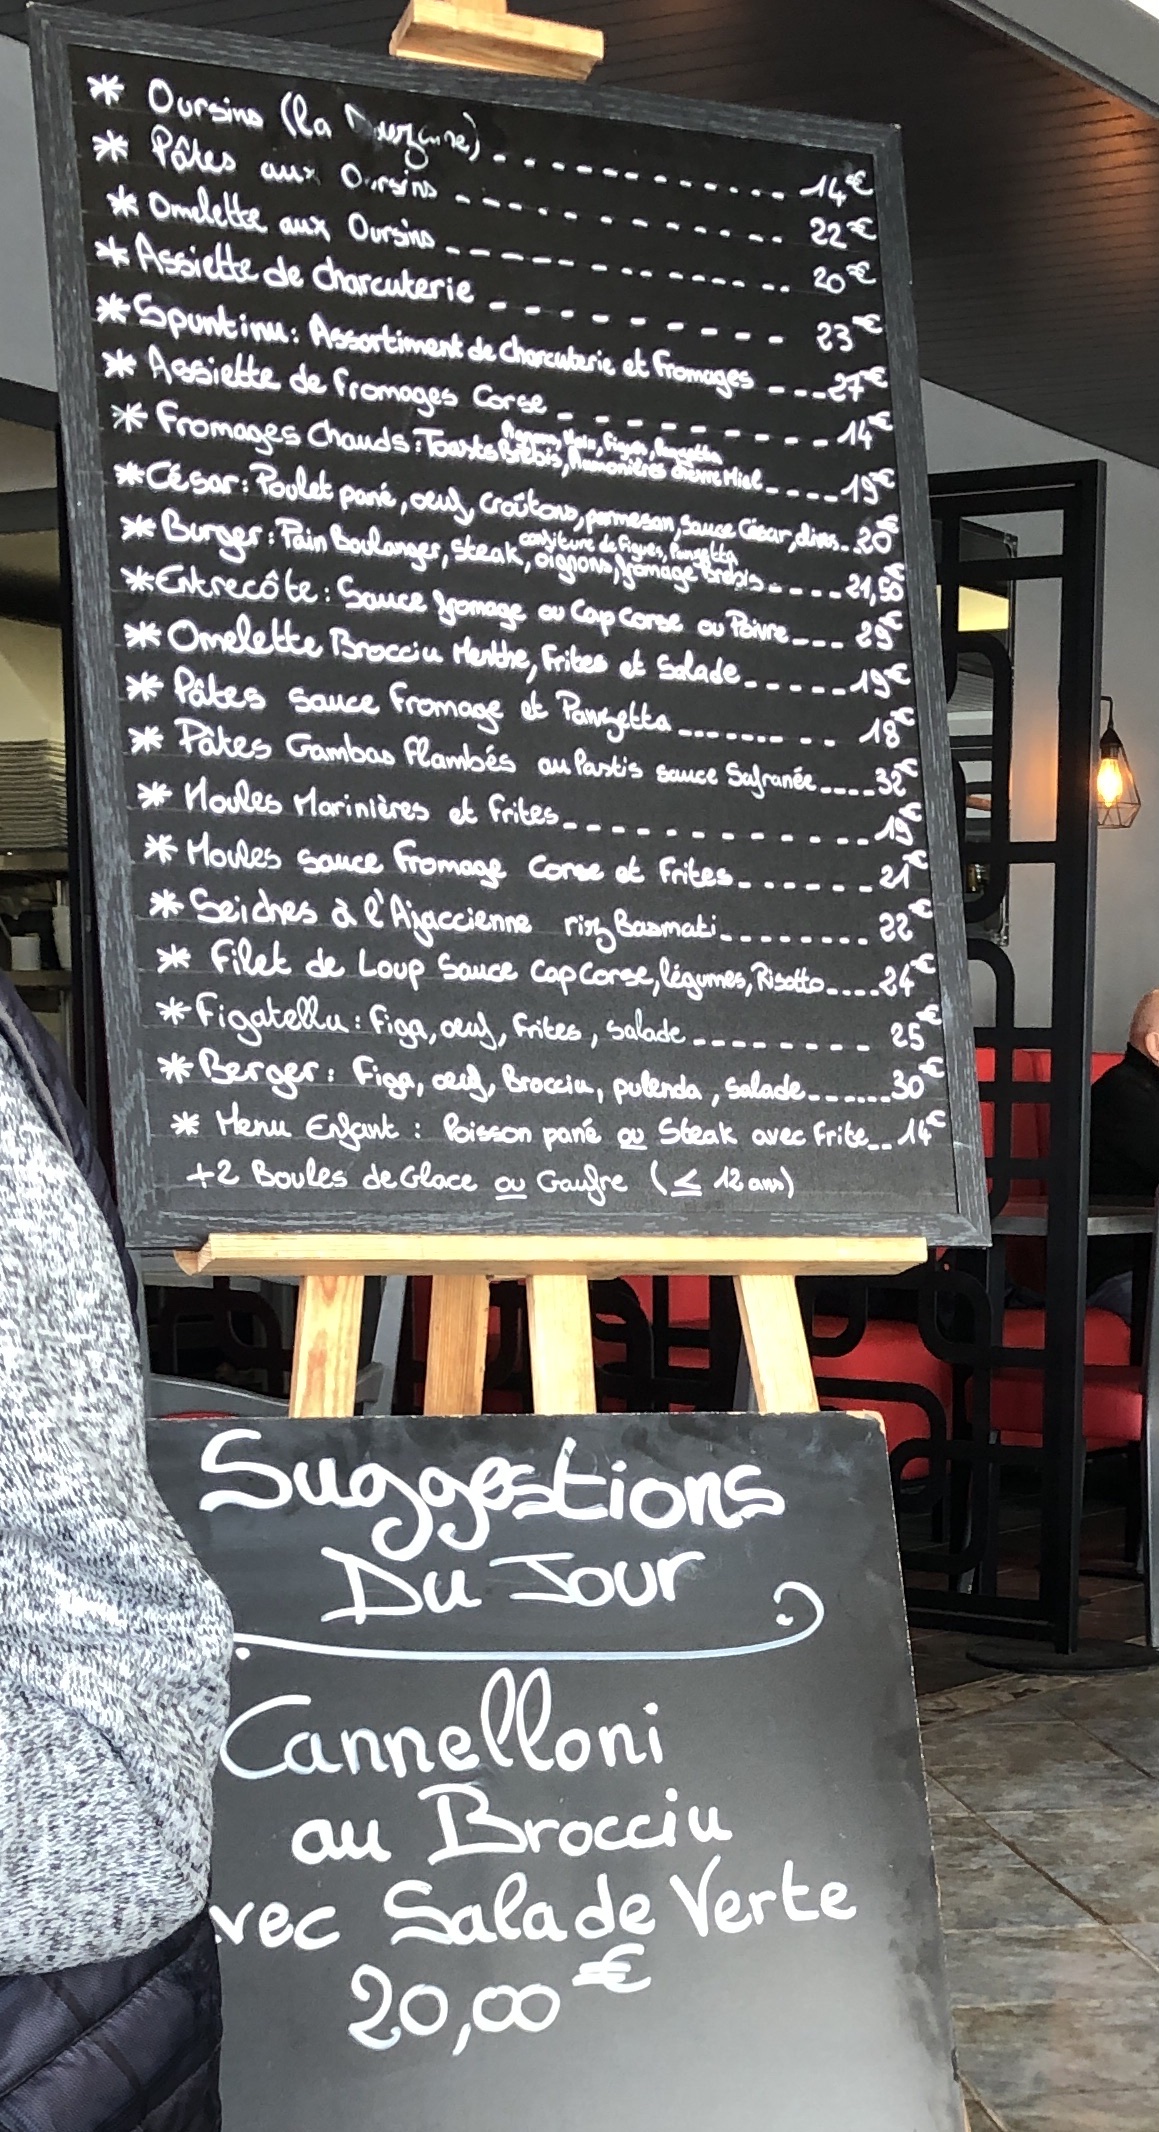 * Oursins (la Douzaine) - - - - - - - - - - - 14€
* Pâtes aux Oursins - - - - - - - - - - 22€
* Omelette aux Oursins - - - - - - - - - - - - 20€
* Assiette de charcuterie - - - - - - - - - - 23€
* Spuntinu : Assortiment de Charcuterie et Fromages - - - 27€
* Assiette de fromages Corse - - - - - - - - - 14€
Pignons, Noix, Figues, Panzetta
* Fromages Chauds : Toasts Brebis, Aumonières chèvre Miel - - - - 19€
* César : Poulet pané, oeuf, Croûtons, parmesan, sauce César, olives - - 20€
confiture de Figues, Panzetta
* Burger : Pain Boulanger, steak, oignons, fromage Brebis - - - - 21,50€
* Entrecôte : Sauce fromage ou Cap Corse ou Poivre - - - 29€
* Omelette Brocciu Menthe, Frites et Salade - - - - - 19€
* Pâtes sauce Fromage et Panzetta - - - - - - - - 18€
* Pâtes Gambas Flambés au Pastis sauce Safranée - - - - 32€
* Moules Marinières et Frites - - - - - - - - - - - - 19€
* Moules sauce Fromage Corse et Frites - - - - - - 21€
* Seiches à l'Ajaccienne riz Basmati - - - - - - - - 22€
* Filet de Loup Sauce Cap Corse, légumes, Risotto - - - - 24€
* Figatellu : Figa, oeuf, Frites, salade - - - - - - - - 25€
* Berger : Figa, oeuf, Brocciu, pulenda, salade - - - - - - 30€
* Menu Enfant : Poisson pané ou Steak avec Frite - - 14€
+2 Boules de Glace ou Gaufre (≤ 12 ans)
Suggestions
Du Jour
Cannelloni
au Brocciu
vec Salade Verte
20,00€